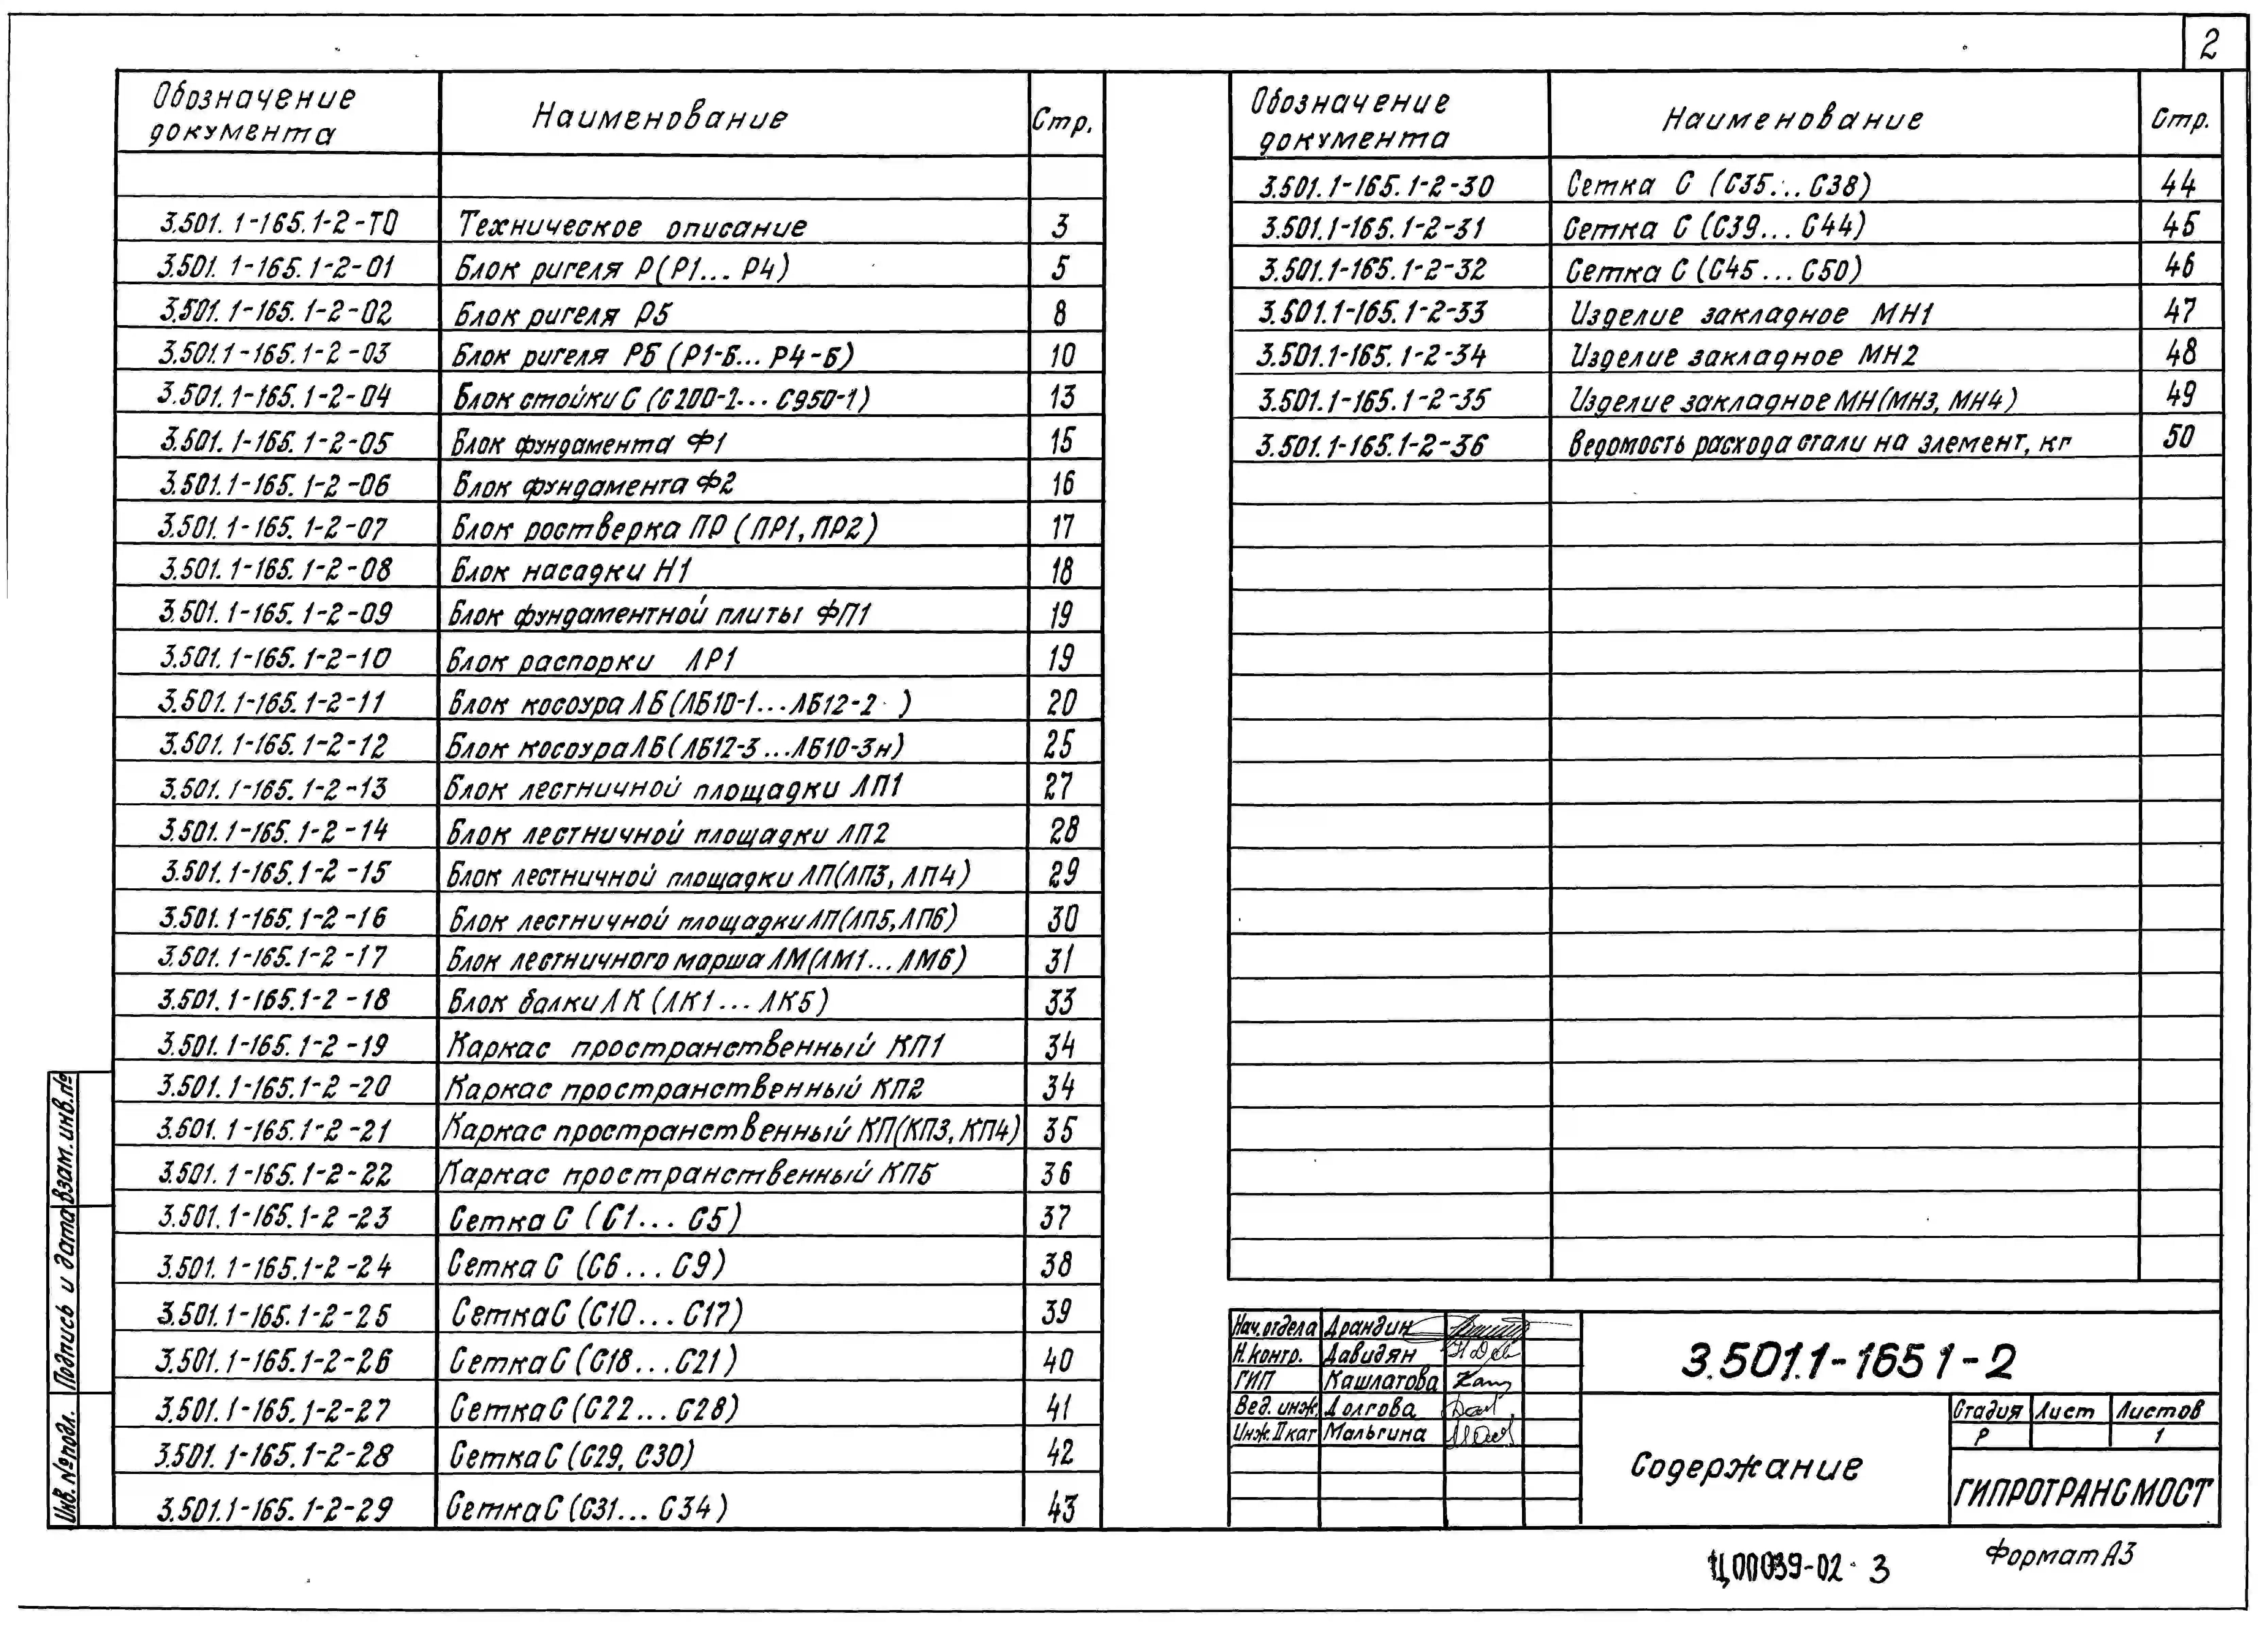 2
Обозначение документа Наименование Стр.
3.501.1-165.1-2-ТО Техническое описание 3
3.501.1-165.1-2-01 Блок ригеля Р(Р1...Р4) 5
3.501.1-165.1-2-02 Блок ригеля Р5 8
3.501.1-165.1-2-03 Блок ригеля РБ (Р1-Б...Р4-Б) 10
3.501.1-165.1-2-04 Блок стойки С (С200-1...С950-1) 13
3.501.1-165.1-2-05 Блок фундамента Ф1 15
3.501.1-165.1-2-06 Блок фундамента Ф2 16
3.501.1-165.1-2-07 Блок ростверка ПР (ПР1, ПР2) 17
3.501.1-165.1-2-08 Блок насадки Н1 18
3.501.1-165.1-2-09 Блок фундаментной плиты ФП1 19
3.501.1-165.1-2-10 Блок распорки ЛР1 19
3.501.1-165.1-2-11 Блок косоура ЛБ(ЛБ10-1...ЛБ12-2 ) 20
3.501.1-165.1-2-12 Блок косоура ЛБ(ЛБ12-3...ЛБ10-3н) 25
3.501.1-165.1-2-13 Блок лестничной площадки ЛП1 27
3.501.1-165.1-2-14 Блок лестничной площадки ЛП2 28
3.501.1-165.1-2-15 Блок лестничной площадки ЛП(ЛП3, ЛП4) 29
3.501.1-165.1-2-16 Блок лестничной площадки ЛП(ЛП5, ЛП6) 30
3.501.1-165.1-2-17 Блок лестничного марша ЛМ(ЛМ1...ЛМ6) 31
3.501.1-165.1-2-18 Блок балки ЛК (ЛК1...ЛК5) 33
3.501.1-165.1-2-19 Каркас пространственный КП1 34
3.501.1-165.1-2-20 Каркас пространственный КП2 34
3.501.1-165.1-2-21 Каркас пространственный КП(КП3, КП4) 35
3.501.1-165.1-2-22 Каркас пространственный КП5 36
3.501.1-165.1-2-23 Сетка С (С1...С5) 37
3.501.1-165.1-2-24 Сетка С (С6...С9) 38
3.501.1-165.1-2-25 Сетка С (С10...С17) 39
3.501.1-165.1-2-26 Сетка С (С18...С21) 40
3.501.1-165.1-2-27 Сетка С (С22...С28) 41
3.501.1-165.1-2-28 Сетка С (С29, С30) 42
3.501.1-165.1-2-29 Сетка С (С31...С34) 43
Обозначение документа Наименование Стр.
3.501.1-165.1-2-30 Сетка С (С35...С38) 44
3.501.1-165.1-2-31 Сетка С (С39...С44) 45
3.501.1-165.1-2-32 Сетка С (С45...С50) 46
3.501.1-165.1-2-33 Изделие закладное МН1 47
3.501.1-165.1-2-34 Изделие закладное МН2 48
3.501.1-165.1-2-35 Изделие закладное МН(МН3, МН4) 49
3.501.1-165.1-2-36 Ведомость расхода стали на элемент, кг 50
Взам. инв. №
Подпись и дата
Инв. № подл.
Нач. отдела Драндин
Н. контр. Давидян
ГИП Кашлатова
Вед. инж. Долгова
Инж. II кат Мальгина
3.501.1-165 1-2
Содержание
Стадия Лист Листов
Р 1
ГИПРОТРАНСМОСТ
ЦОО039-02 3
Формат А3